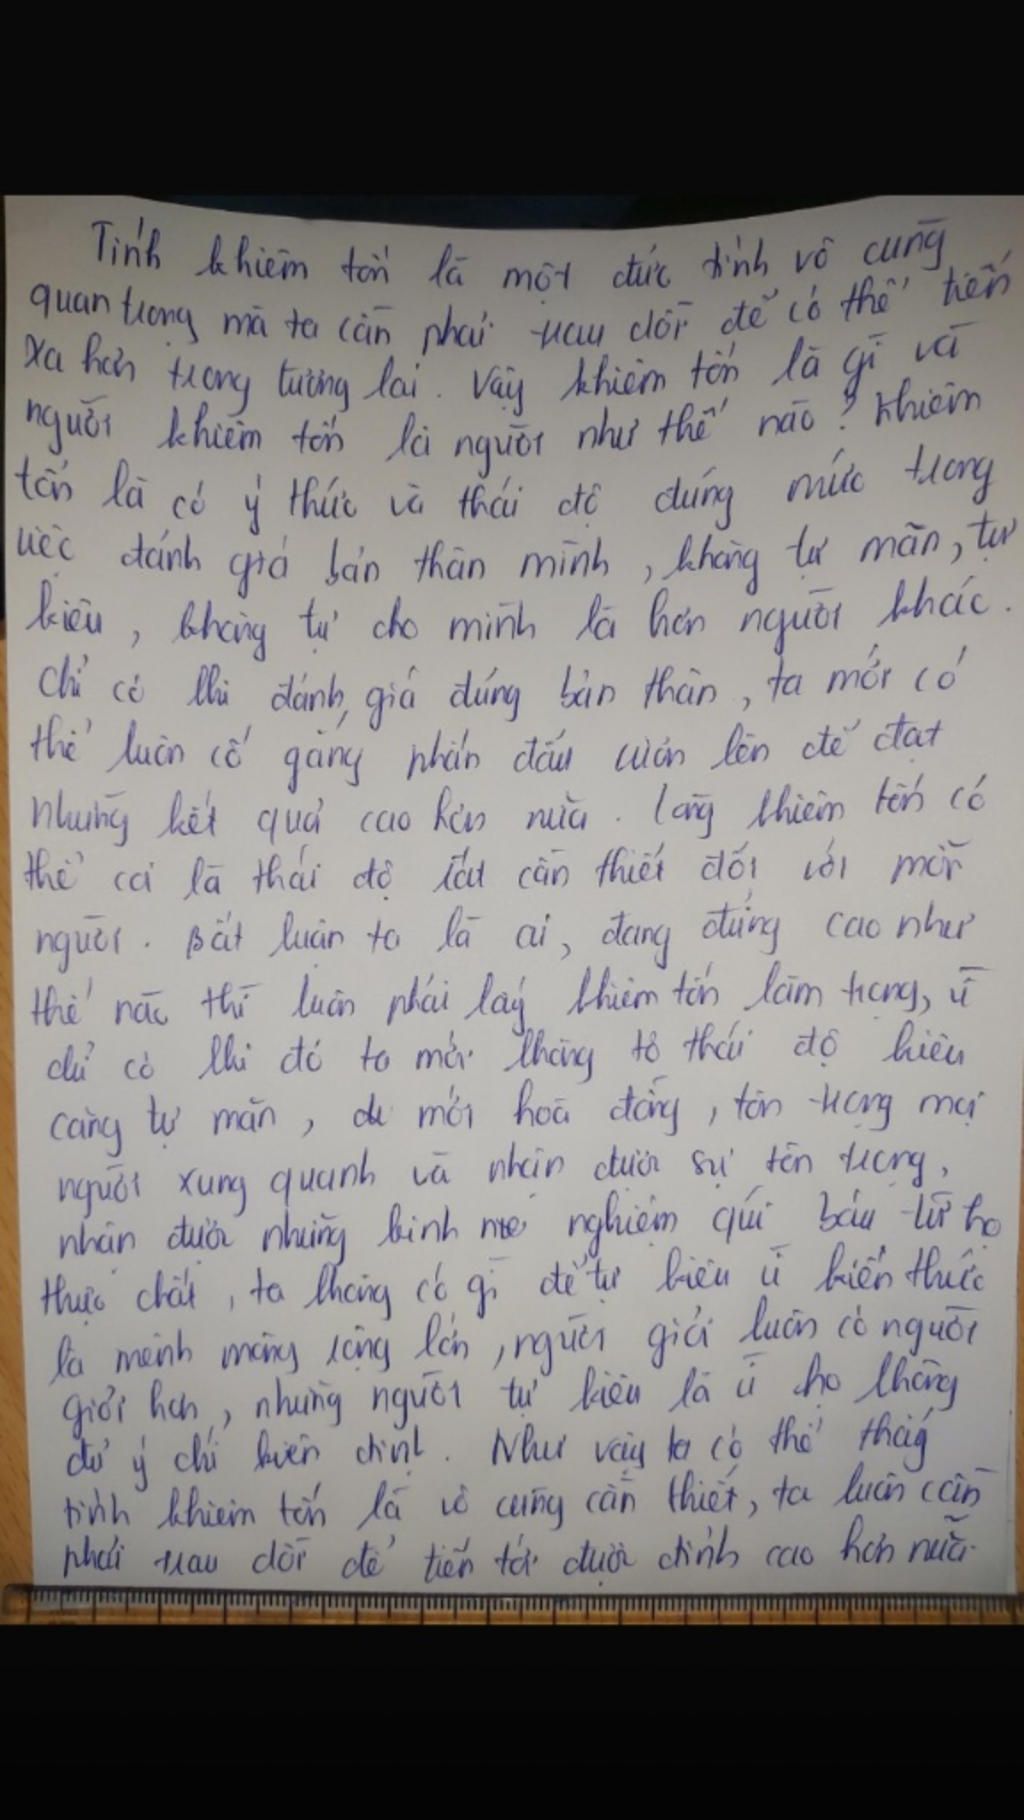 Tính khiêm tốn là một đức tính vô cùng
quan trọng mà ta cần phải trau dồi để có thể tiến
xa hơn trong tương lai. Vậy khiêm tốn là gì và
người khiêm tốn là người như thế nào? Khiêm
tốn là có ý thức và thái độ đúng mức trong
việc đánh giá bản thân mình, không tự mãn, tự
kiêu, không tự cho mình là hơn người khác.
Chỉ có khi đánh giá đúng bản thân, ta mới có
thể luôn cố gắng phấn đấu vươn lên để đạt
những kết quả cao hơn nữa. Lòng khiêm tốn có
thể coi là thái độ rất cần thiết đối với mỗi
người. Bất luận ta là ai, đang đứng cao như
thế nào thì luôn phải lấy khiêm tốn làm trọng, vì
chỉ có khi đó ta mới không tỏ thái độ kiêu
căng tự mãn, mới hoà đồng, tôn trọng mọi
người xung quanh và nhận được sự tôn trọng,
nhận được những kinh nghiệm quí báu từ họ
thực chất, ta không có gì để tự kiêu vì kiến thức
là mênh mông rộng lớn, người giỏi luôn có người
giỏi hơn, những người tự kiêu là vì họ không
đủ ý chí kiên định. Như vậy ta có thể thấy
tính khiêm tốn là vô cùng cần thiết, ta luôn cần
phải trau dồi để tiến tới được đỉnh cao hơn nữa.